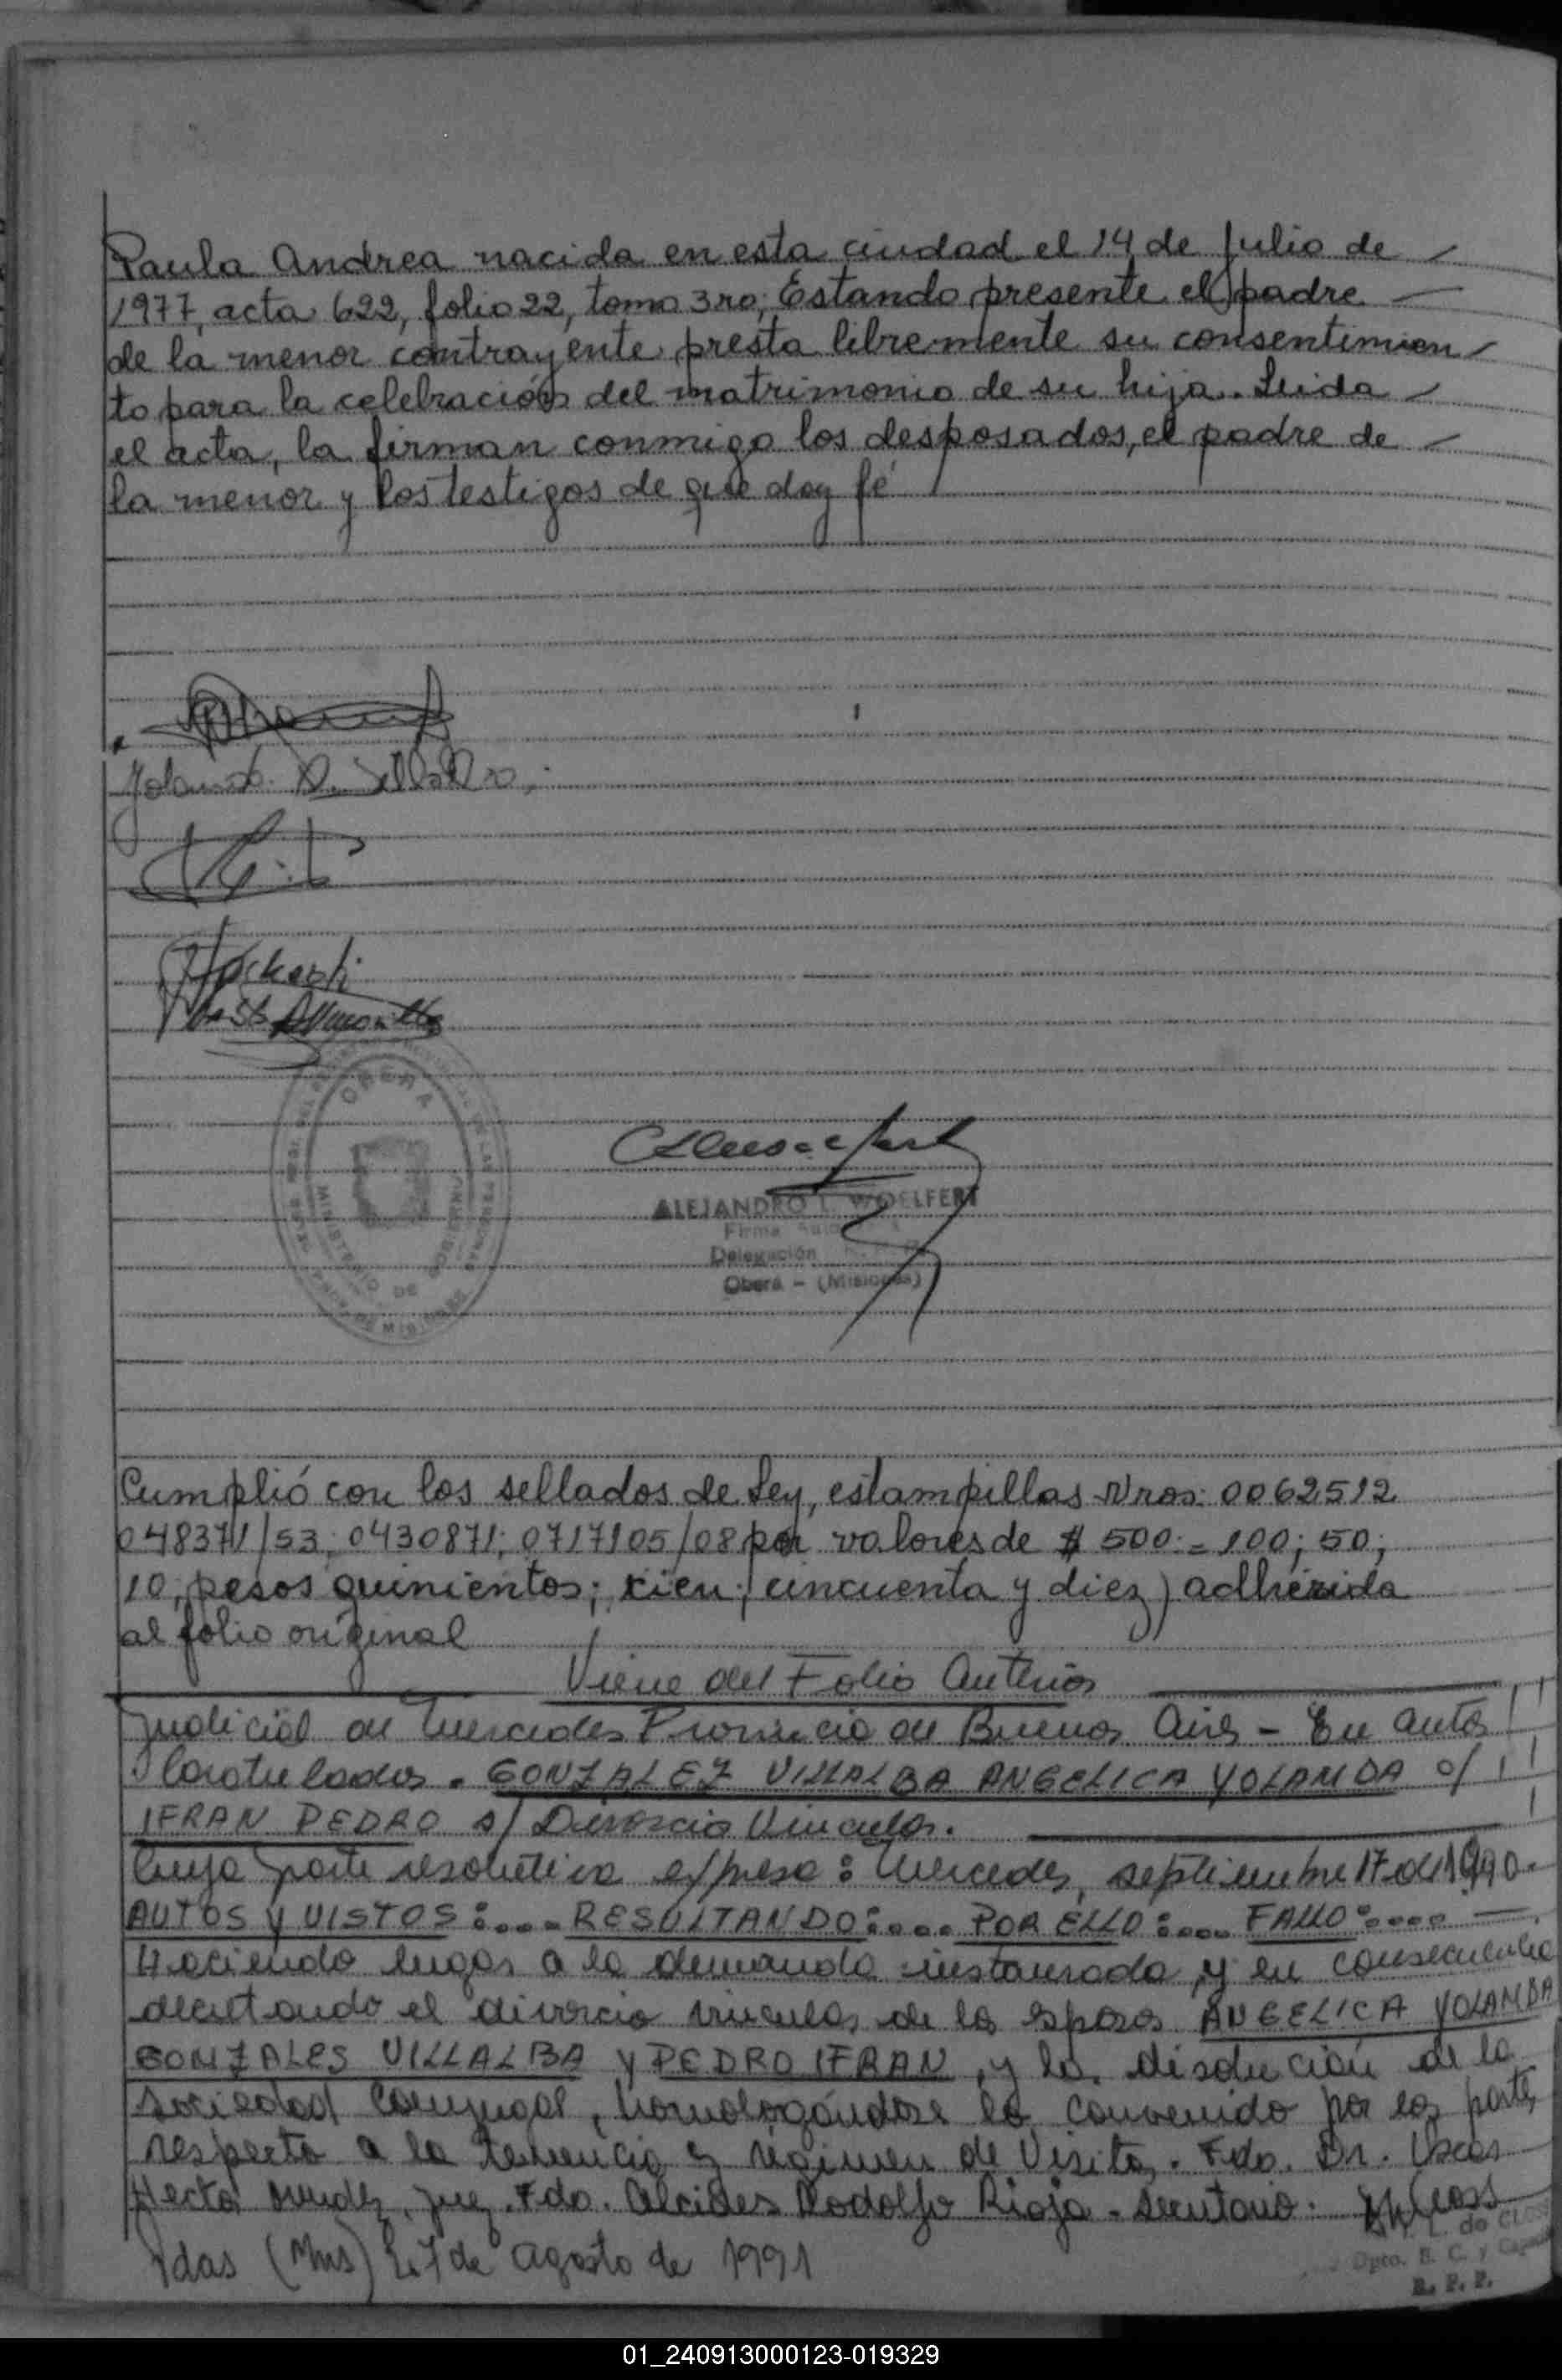 Paula Andrea nacida en esta ciudad el 14 de Julio de
1977, acta 622, folio 22, tomo 3ro; Estando presente el padre
de la menor contrayente presta libremente su consentimien
to para la celebración del matrimonio de su hija. Leida
el acta, la firman conmigo los desposados, el padre de
la menor y los testigos de que doy fé
OBERA
MINISTERIO DE GOBIERNO
ALEJANDRO L. WOELFERT
Firma
Delegación
Oberá - (Misiones)
Cumplió con los sellados de Ley, estampillas Nros: 0062512
048371/53; 0430871; 0717105/08 por valores de $ 500.= 100; 50;
10; pesos quinientos; cien; cincuenta y diez) adherida
al folio original
Viene del Folio Anterior
Judicial de Mercedes Provincia de Buenos Aires - En autos
Caratulados. GONZALEZ VILLALBA ANGELICA YOLANDA c/
IFRAN PEDRO s/ Divorcio Vincular.
Cuya parte resolutiva expresa: Mercedes, septiembre 17 de 1990.
AUTOS y VISTOS:.... RESULTANDO:.... POR ELLO:.... FALLO:....
Haciendo lugar a la demanda instaurada, y en consecuencia
decretando el divorcio vincular de los esposos ANGELICA YOLANDA
GONZALES VILLALBA y PEDRO IFRAN, y la disolución de la
Sociedad Conyugal, homologándose lo convenido por las partes
respecto a la tenencia y régimen de Visitas. Fdo. Dr. Oscar
Hector Mendez, Juez. Fdo. Alcides Rodolfo Rioja - Secretario.
Pdas (Mns) 27 de Agosto de 1991
L. de CLOSS
Dpto. E. C. y
R. P. P.
01_240913000123-019329